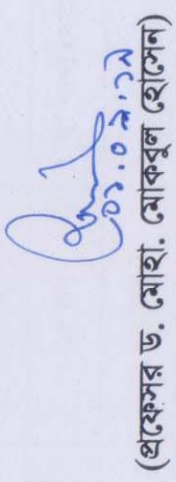 ০১.০৯.১৯
(প্রফেসর ড. মোহা. মোকবুল হোসেন)